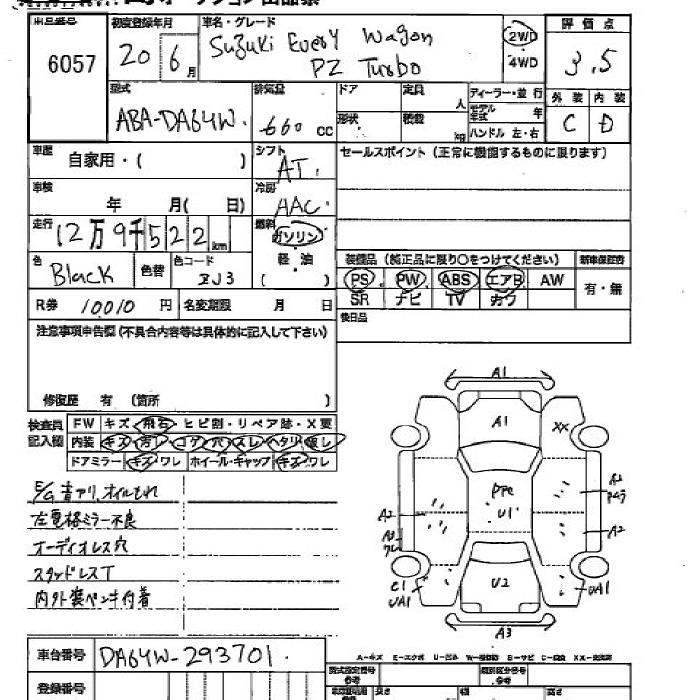 出品番号 初度登録年月 車名・グレード 評価点
6057 20 6月 Suzuki Every Wagon 2WD 3.5
PZ Turbo 4WD
型式 排気量 ドア 定員 人 ディーラー・並行 外装 内装
ABA-DA64W. 660 cc 形状 積載 kg モデル年式 年 C D
ハンドル 左・右
車歴 自家用・( ) シフト AT. セールスポイント(正常に機能するものに限ります)
車検 年 月( 日) 冷房 AAC
走行 12万9千522km 燃料 ガソリン
軽・油
( )
色 Black 色替 色コード ZJ3
装備品(純正品に限り○をつけてください) 新車保証書
PS PW ABS エアB AW 有・無
SR ナビ TV カワ
R券 10010円 名変期限 月 日 後日品
注意事項申告欄(不具合内容等は具体的に記入して下さい)
修復歴 有 (箇所 )
検査員記入欄 FW キズ・飛石・ヒビ割・リペア跡・X要
内装 キズ・汚レ・コゲ・穴・スレ・ヘタリ・
ドアミラー キズ・ワレ ホイール・キャップ キズ・ワレ
E/G音アリ、オイルもれ
左電格ミラー不良
オーディオレス穴
スタッドレスT
内外装ペンキ付着
A1
A1
XX
A2
U1
A2
A2
C1
UA1
U2
UA1
A3
A-キズ E-エクボ U-凹み S-サビ
車台番号 DA64W-293701
登録番号
型式指定番号 類別区分番号
参考 参考
長さ 幅 高さ